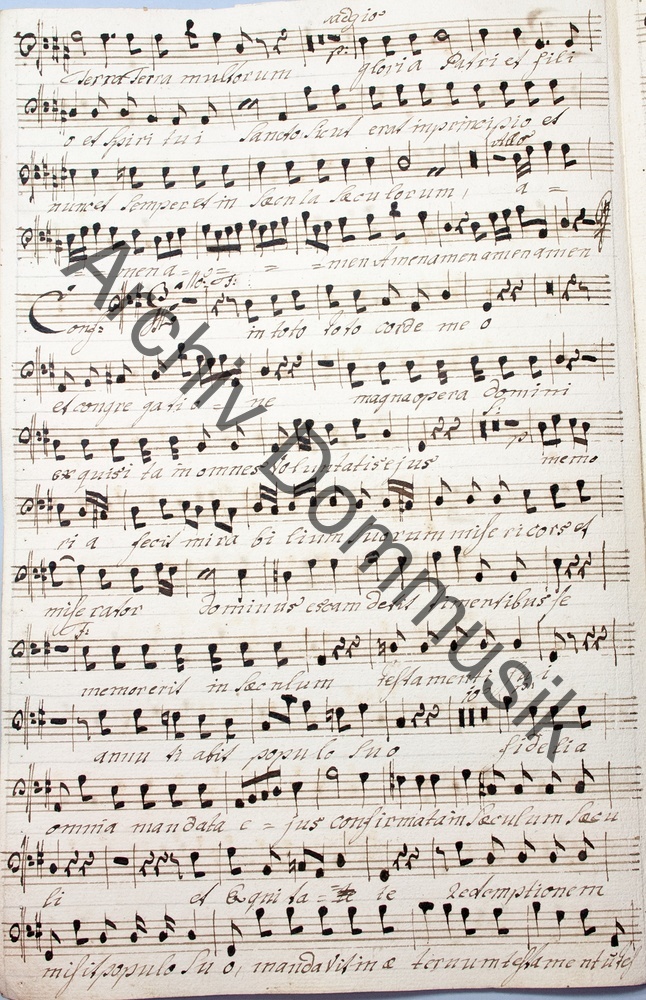 adgio
Terra Terra multorum gloria Patri et fili
p:
o et spiri tui Sancto Sicut erat inprincipio et
Allo
nuncet Semper et in Sæcula Sæculorum, a =
= = mena = o = = = men Amenamenamenamen
Conf: in toto toto corde me o
et congre gati o = ne magnaopera domini
f: p:
exquisi ta in omnes voluntatis ejus memo
ri a fecit mira bi lium suorum mise ri cors et
mise rator dominus escam dedit timentibus se
f:
memorerit in Sæculum testamenti sui
10
annu ti abit populo Suo fidelia
omnia mandata e = jus confirmata in Sæculum Sæcu
li et Equita = te ie Redemptionem
misit populo Su o, mandavit in æ ternum testamentu
Archiv Dommusik